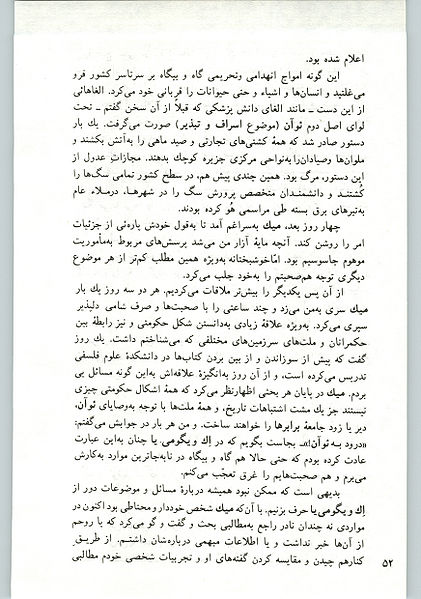 اعلام شده بود.
این گونه امواج انهدامی وتحریمی گاه و بیگاه بر سرتاسر کشور فرو
می‌غلتید و انسان‌ها و اشیاء و حتی حیوانات را قربانی خود می‌کرد. الغاهائی
از این دست ـ مانند الغای دانش پزشکی که قبلاً از آن سخن گفتم ـ تحت
لوای اصل دوم ئوآن (موضوع اسراف و تبذیر) صورت می‌گرفت. یك بار
دستور صادر شد که همهٔ کشتی‌های تجارتی و صید ماهی را به‌آتش بکشند و
ملوان‌ها وصیادان‌را به‌نواحی مرکزی جزیره کوچك بدهند. مجازات عدول از
این دستور، مرگ بود. همین چندی پیش هم، در سطح کشور تمامی سگ‌ها را
کُشتند و دانشمندان متخصص پرورش سگ را در شهرها، درملاء عام
به‌تیرهای برق بسته طی مراسمی هُو کرده بودند.
چهار روز بعد، میك به‌سراغم آمد تا به‌قول خودش پاره‌ئی از جزئیات
امر را روشن کند. آنچه مایهٔ آزار من می‌شد پرسش‌های مربوط به‌مأموریت
موهوم جاسوسیم بود. امّاخوشبختانه به‌ویژه همین مطلب کم‌تر از هر موضوع
دیگری توجه هم‌صحبتم را به‌خود جلب می‌کرد.
از آن پس یکدیگر را بیش‌تر ملاقات می‌کردیم. هر دو سه روز یك بار
میك سری به‌من می‌زد و چند ساعتی را با صحبت‌ها و صرف شامی دلپذیر
سپری می‌کرد. به‌ویژه علاقهٔ زیادی به‌دانستن شکل حکومتی و نیز رابطهٔ بین
حکمرانان و ملت‌های سرزمین‌های مختلفی که می‌شناختم داشت. یك روز
گفت که پیش از سوزاندن و از بین بردن کتاب‌ها در دانشکدهٔ علوم فلسفی
تدریس می‌کرده است، و از آن روز به‌انگیزهٔ علاقه‌اش به‌این گونه مسائل پی
بردم. میك در پایان هر بحثی اظهارنظر می‌کرد که همهٔ اشکال حکومتی چیزی
نیستند جز یك مشت اشتباهات تاریخ، و همهٔ ملت‌ها با توجه به‌وصایای ئوآن،
دیر یا زود جامعهٔ برابرها را خواهند ساخت. و من هر بار در جوابش می‌گفتم:
«درود به ئوآن!». بجاست بگویم که در اِك و یگومی یا چنان به‌این عبارت
عادت کرده بودم که حتی حالا هم گاه و بیگاه در نابه‌جاترین موارد به‌کارش
می‌برم و هم صحبت‌هایم را غرق تعجّب می‌کنم.
بدیهی است که ممکن نبود همیشه دربارهٔ مسائل و موضوعات دور از
اِك و یگومی‌یا حرف بزنیم. با آن‌که میك شخص خوددار ومحتاطی بود اکنون در
مواردی نه چندان نادر راجع به‌مطالبی بحث و گفت و گو می‌کرد که یا روحم
از آن‌ها خبر نداشت و یا اطلاعات مبهمی درباره‌شان داشتم. از طریق
کنارهم چیدن و مقایسه کردن گفته‌های او و تجربیات شخصی خودم مطالبی
۵۲